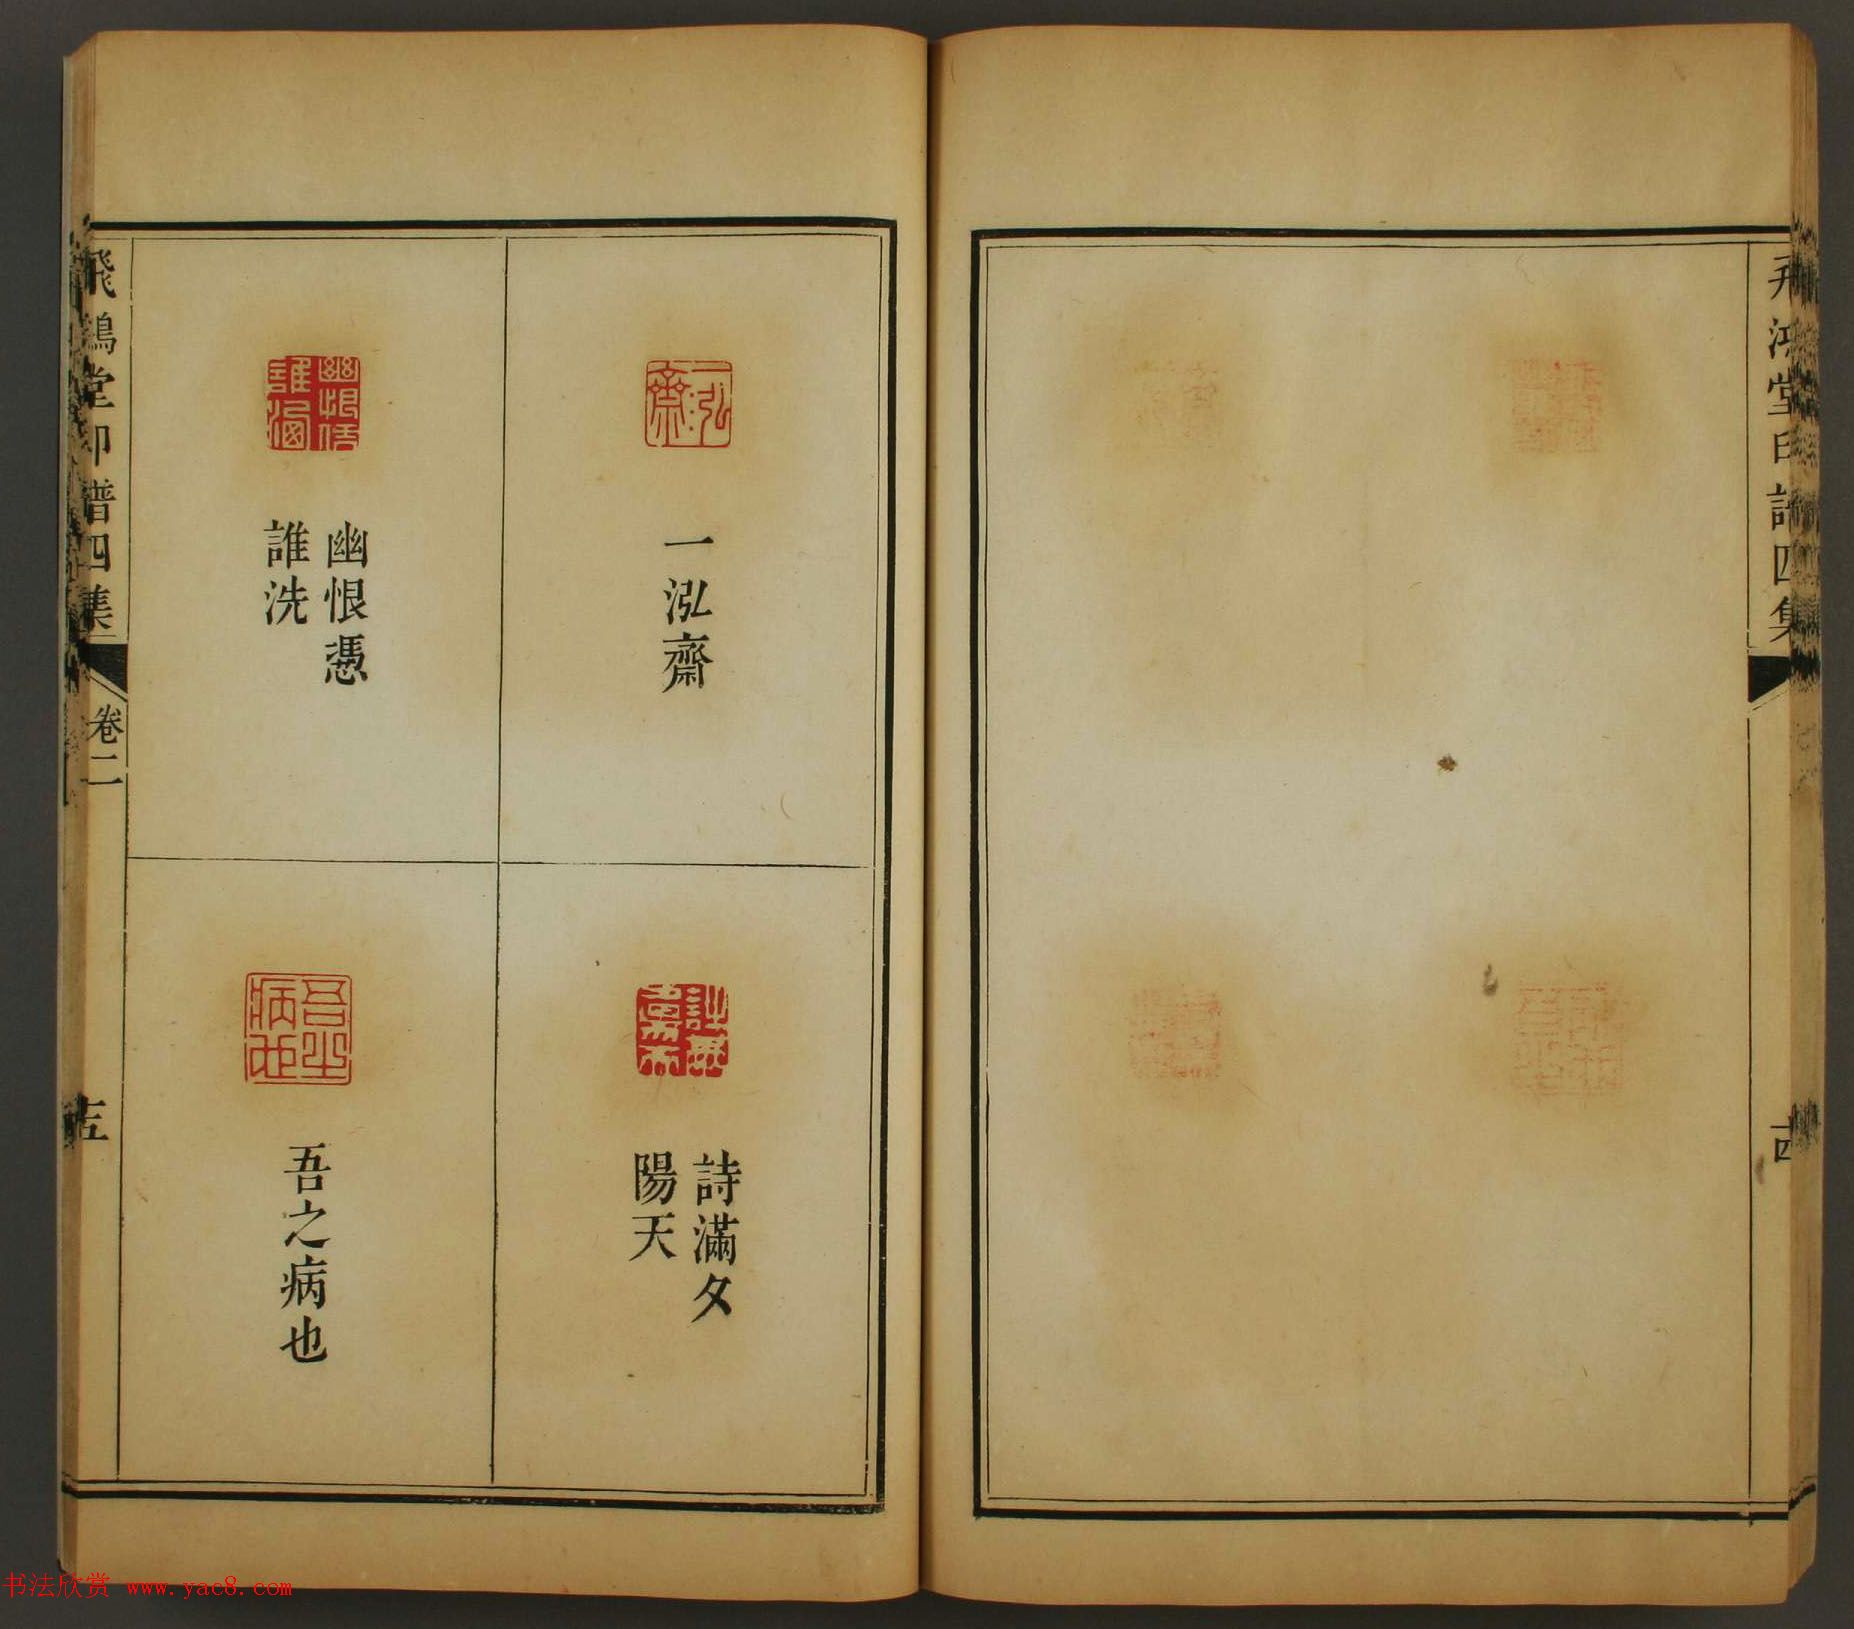 飛鴻堂印譜四集
十四
一泓齋
一泓齋
幽恨憑誰洗
幽恨憑
誰洗
詩滿夕陽天
詩滿夕
陽天
吾之病也
吾之病也
飛鴻堂印譜四集
卷二
十五
书法欣赏 www.yac8.com